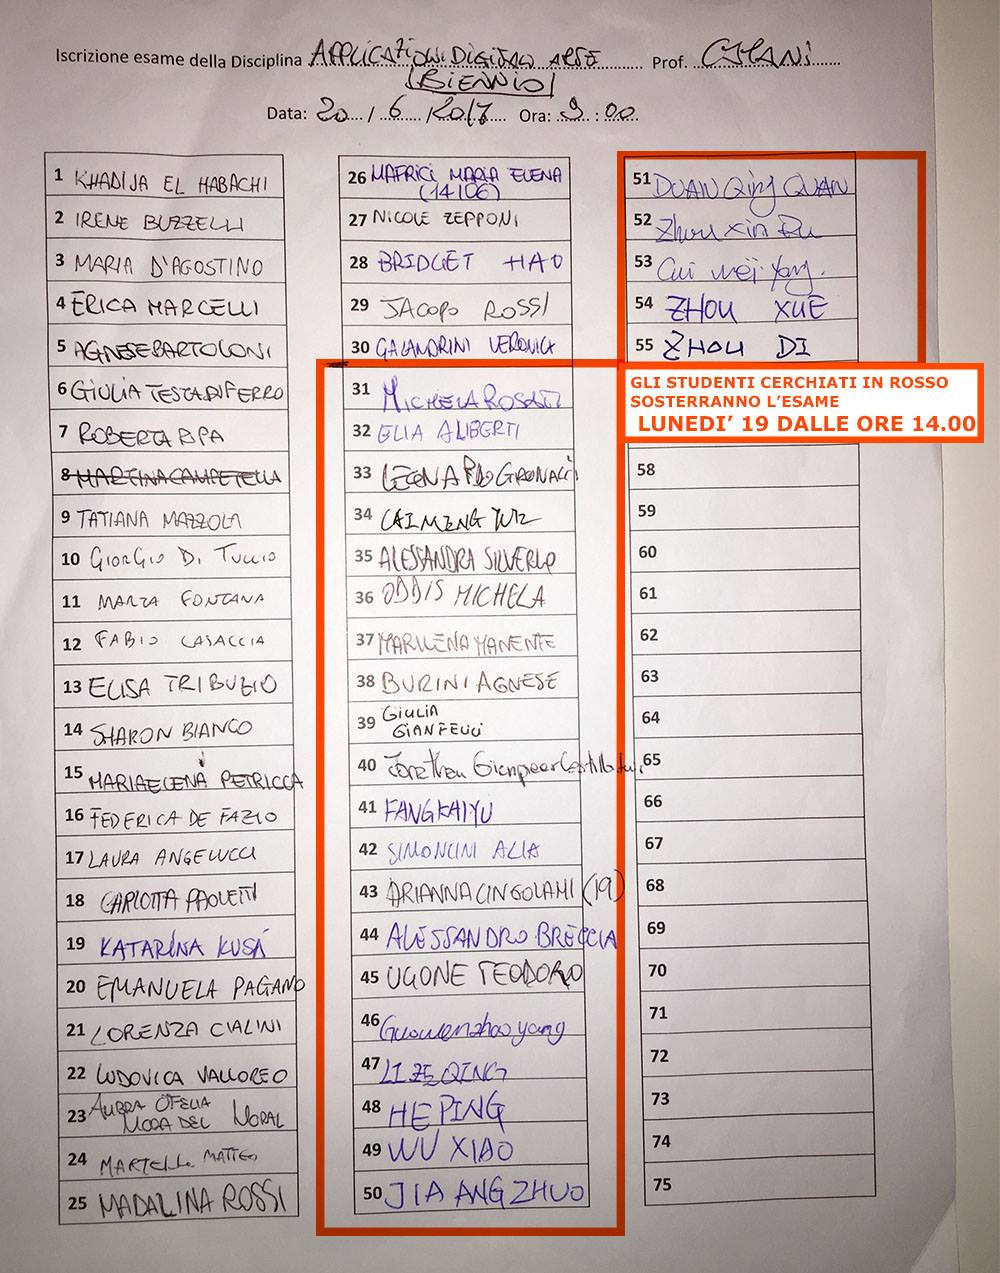 Iscrizione esame della Disciplina APPLICAZIONI DIGITALI ARTE Prof. CIPRIANI
(BIENNIO)
Data: 20 / 6 / 2017 Ora: 9 : 00
1 KHADIJA EL HABACHI
2 IRENE BUZZELLI
3 MARIA D'AGOSTINO
4 ERICA MARCELLI
5 AGNESE BARTOLONI
6 GIULIA TESTADIFERRO
7 ROBERTA RIPA
8 MARTINA CAMPETELLA
9 TATIANA MAZZOLA
10 GIORGIO DI TULLIO
11 MARTA FONTANA
12 FABIO CASACCIA
13 ELISA TRIBUZIO
14 SHARON BIANCO
15 MARIAELENA PETRICCA
16 FEDERICA DE FAZIO
17 LAURA ANGELUCCI
18 CARLOTTA PAOLETTI
19 KATARÍNA KUSÁ
20 EMANUELA PAGANO
21 LORENZA CIALINI
22 LUDOVICA VALLOREO
23 AURRA OFELIA
MORA DEL MORAL
24 MARTELLI MATTEO
25 MADALINA ROSSI
26 MAFRICI MARIA ELENA
(14106)
27 NICOLE ZEPPONI
28 BRIDGET HAO
29 JACOPO ROSSI
30 GALANDRINI VERONICA
31 MICHELA ROSATI
32 ELIA ALIBERTI
33 LEONARDO GIRONACCI
34 CAIMENG
35 ALESSANDRA SILVERIO
36 ODDIS MICHELA
37 MARILENA MANENTE
38 BURINI AGNESE
39 GIULIA
GIANFELICI
40 Jonathan Gianpeer
41 FANGKAIYU
42 SIMONCINI ALIA
43 ARIANNA CINGOLAMI (19)
44 ALESSANDRO BRECCIA
45 UGONE TEODORO
46 Guowenzhaoyang
47 LI ZE QING
48 HE PING
49 WU XIAO
50 JIA ANGZHUO
51 DUAN Qing QUAN
52 Zhou xin Ru
53 Cui wei Yang.
54 ZHOU XUE
55 ZHOU DI
GLI STUDENTI CERCHIATI IN ROSSO
SOSTERRANNO L'ESAME
LUNEDI' 19 DALLE ORE 14.00
58
59
60
61
62
63
64
65
66
67
68
69
70
71
72
73
74
75